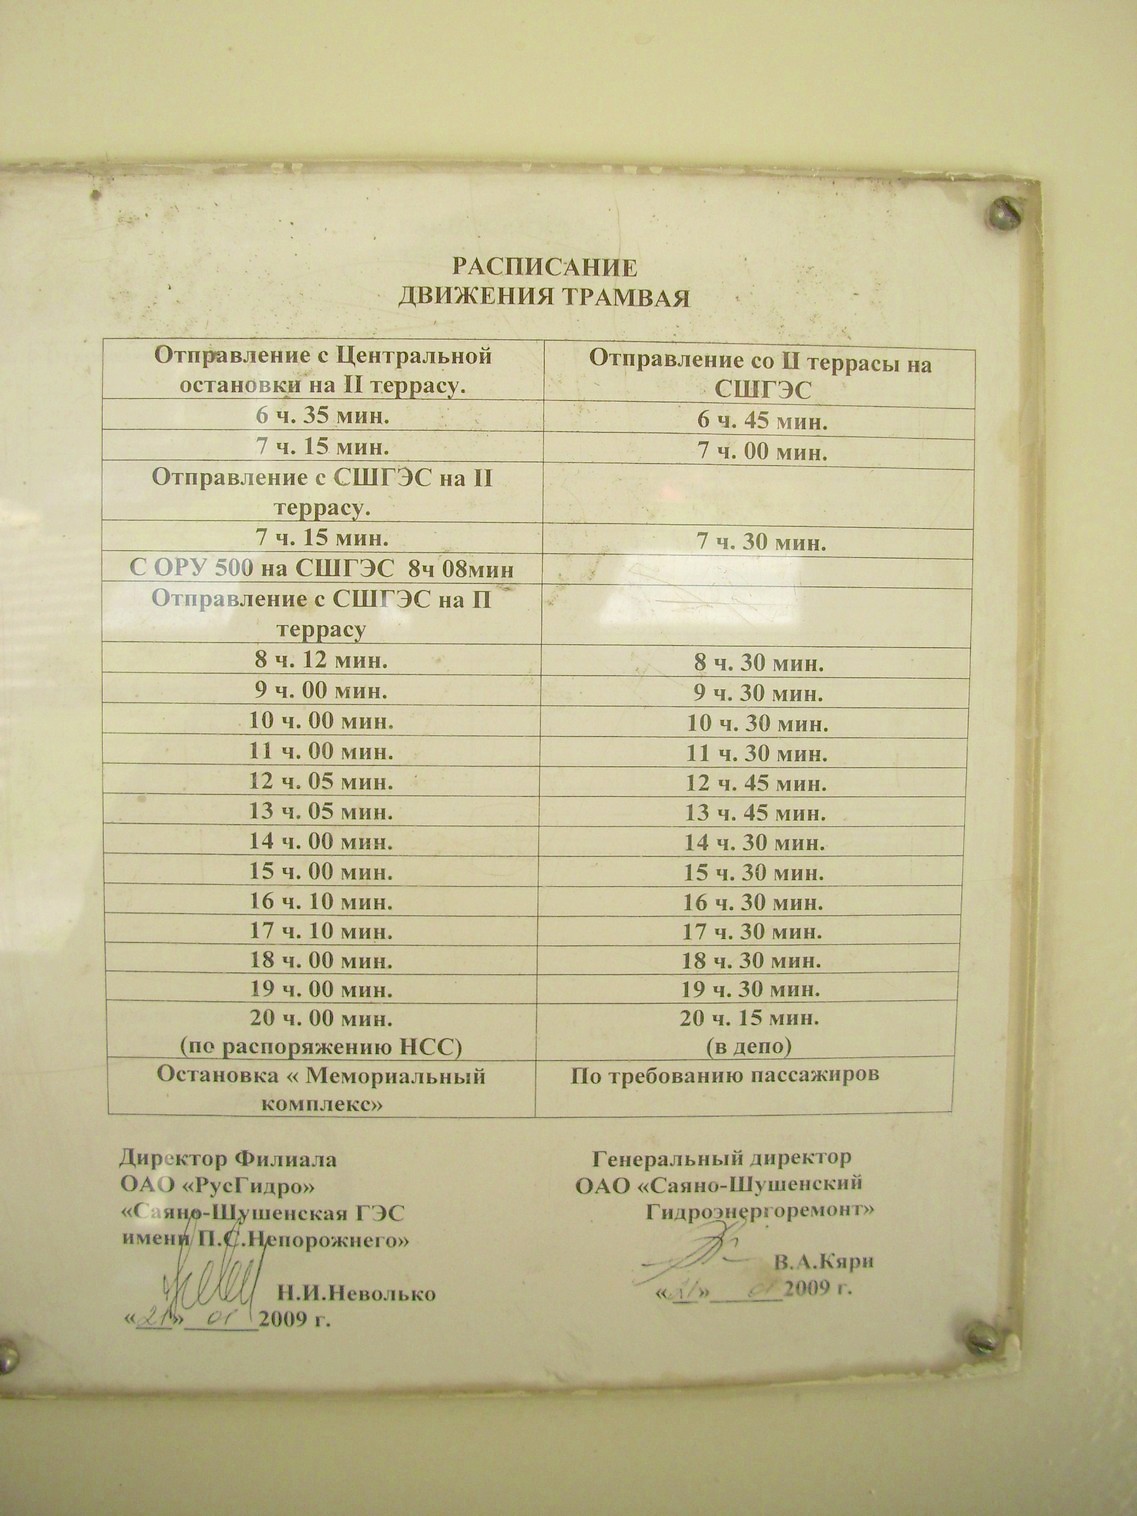 РАСПИСАНИЕ
ДВИЖЕНИЯ ТРАМВАЯ
Отправление с Центральной остановки на II террасу.
Отправление со II террасы на СШГЭС
6 ч. 35 мин.
6 ч. 45 мин.
7 ч. 15 мин.
7 ч. 00 мин.
Отправление с СШГЭС на II террасу.
7 ч. 15 мин.
7 ч. 30 мин.
С ОРУ 500 на СШГЭС 8ч 08мин
Отправление с СШГЭС на П террасу
8 ч. 12 мин.
8 ч. 30 мин.
9 ч. 00 мин.
9 ч. 30 мин.
10 ч. 00 мин.
10 ч. 30 мин.
11 ч. 00 мин.
11 ч. 30 мин.
12 ч. 05 мин.
12 ч. 45 мин.
13 ч. 05 мин.
13 ч. 45 мин.
14 ч. 00 мин.
14 ч. 30 мин.
15 ч. 00 мин.
15 ч. 30 мин.
16 ч. 10 мин.
16 ч. 30 мин.
17 ч. 10 мин.
17 ч. 30 мин.
18 ч. 00 мин.
18 ч. 30 мин.
19 ч. 00 мин.
19 ч. 30 мин.
20 ч. 00 мин.
(по распоряжению НСС)
20 ч. 15 мин.
(в депо)
Остановка « Мемориальный комплекс»
По требованию пассажиров
Директор Филиала
ОАО «РусГидро»
«Саяно-Шушенская ГЭС
имени П.С.Непорожнего»
Н.И.Неволько
«21» 01 2009 г.
Генеральный директор
ОАО «Саяно-Шушенский
Гидроэнергоремонт»
В.А.Кяри
«21» 01 2009 г.